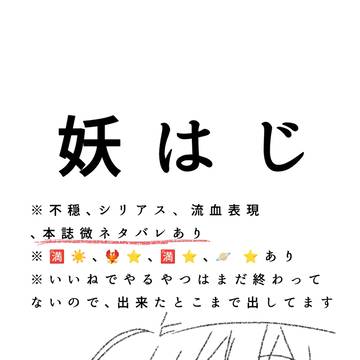 妖はじ
※不穏、シリアス、流血表現
、本誌微ネタバレあり
※🈵☀️、🐦‍🔥⭐、🈵⭐、🪐⭐あり
※いいねでやるやつはまだ終わって
ないので、出来たとこまで出してます